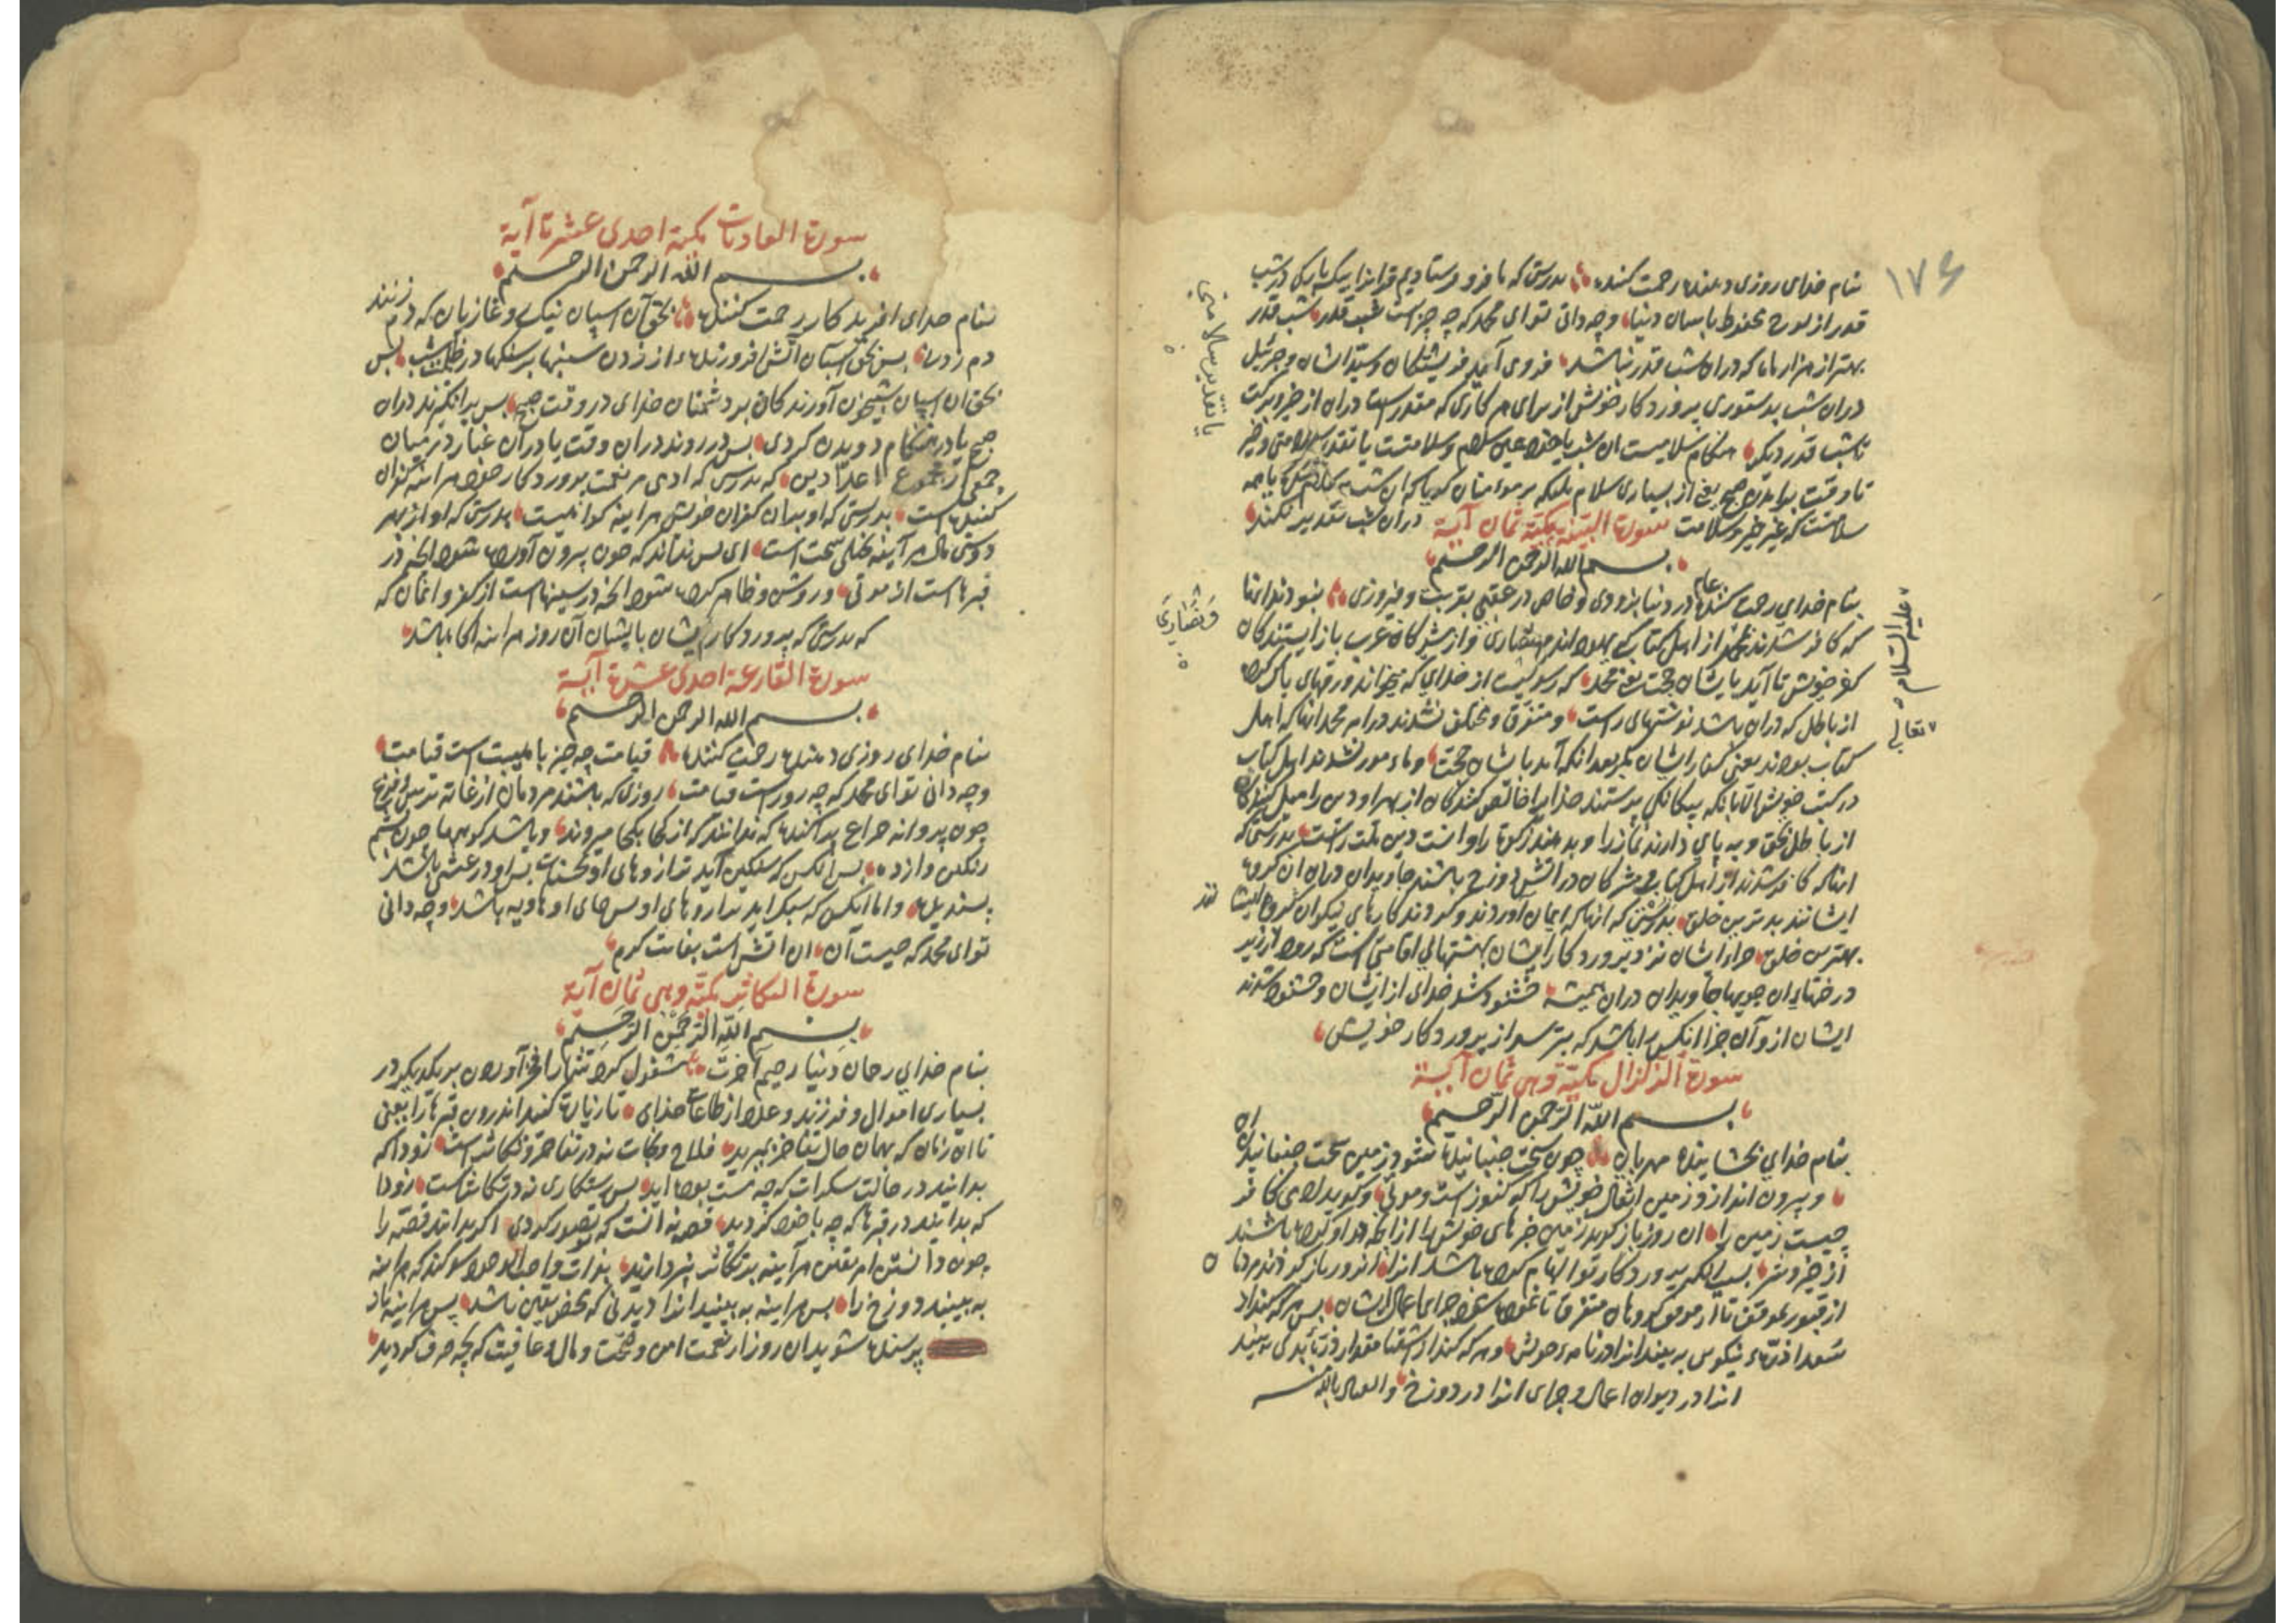 ۱۷۶
بنام خدای روزی دهنده رحمت کننده بدرستی که ما فرو فرستادیم قرانرا بیکبارکی در شب
قدر از لوح محفوظ باسمان دنیا وچه دانی توای محمد که چه چیز است شب قدر شب قدر
بهتر از هزار ماه که دران شب قدر نباشد فرو می آیند فریشتکان وسید ایشان وجبرئیل
دران شب بدستوری پروردکار خویش از برای هر کاری که مقدر است دران از خیر وبرکت
تا شب قدر دیکر هنکام سلامیست ان شب یا خود عین سلام وسلامتست یا تقدیر سلامتی وخیر
تا وقت برامدن صبح یعنی از بسیاری سلام ملیکه بر مومنان کویا که ان شب
سلامتست که غیر خیر وسلامت دران شب تقدیر نکند
سورة البینة مکیة ثمان آیة
بسم الله الرحمن الرحیم
بنام خدای رحمت کننده عام در دنیا بروزی وخاص در عقبی بقربت وفیروزی نبودند انها
که کافر شدند بمحمد از اهل کتاب که یهود اند ونصاری واز مشرکان عرب باز ایستندکان
کفر خویش تا آید بایشان حجت یعنی محمد که رسولیست از خدای که میخواند ورقهای پاک کرده
از باطل که دران باشد نوشتهای راست ومتفرق ومختلف نشدند در امر محمد انها که اهل
کتاب بودند یعنی کفار ایشان مکر بعد انکه آمد بایشان حجت ومامور نشدند اهل کتاب
در کتب خویش الا بانکه بیکانکی پرستند خدایرا خالص کنندکان از بهر او دین را میل کنندکان
از باطل بحق وبه پای دارند نماز را وبدهند زکوة را وانست دین ملت راست بدرستی که
انانکه کافر شدند از اهل کتاب ومشرکان در اتش دوزخ باشند جاویدان دران ان کروه
ایشانند بدترین خلق بدرستی که انها که ایمان آوردند وکردند کارهای نیکو ان کروه ایشا
نند
بهترین خلق جزا ایشان نزد پروردکار ایشان بهشتهای اقامتی است که رود از زیر
درختهای ان جویها جاویدان دران همیشه خشنود شد خدای از ایشان وخشنود شدند
ایشان از و آن جزا انکس را باشد که بترسد از پروردکار خویش
سورة الزلزال مکیة وهی ثمان آیة
بسم الله الرحمن الرحیم
بنام خدای بخشاینده مهربان چون سخت جنبانیده شود زمین سخت جنبانیدن
وبیرون اندازد زمین اثقال خویش را که کنوز است وموتی وکوید ادمی کافر
چیست زمین را ان روز باز کوید زمین خبرهای خویش را از انچه کرده باشند
از خیر وشر بسبب انکه پروردکار تو الهام کرده باشد انرا انروز باز کردند مردمان
از قبور بموقف تا از موقف کروهان متفرق تا نموده شود جزای اعمال ایشان پس هر که کند از
مقدار ذرهء نیکوی به بیند انرا در نامهء خویش وهر که کند از اشقیا مقدار ذره بدی به بیند
انرا در دیوان اعمال وجزای انرا در دوزخ والعیاذ بالله منه
یا تقدیر سلامتی
ونصاری
علیه السلام
تعالی
سورة العادیات مکیة احدی عشرة آیة
بسم الله الرحمن الرحیم
بنام خدای افریدکار رحمت کننده بحق آن اسپان نیک وغازیان که دم زنند
دم زدن پس بحق اسپان آتش افروزنده از زدن سنبها بر سنکها در ظلمت شب پس
بحق ان اسپان شبیخون آورندکان بر دشمنان خدای در وقت صبح پس برانکیزند دران
صبح یا در هنکام دویدن کردی پس در روند دران وقت یا در آن غبار در میان
جمعی از جموع اعدا دین که بدرستی که ادمی مر نعمت پروردکار خود هراینه کفران
کننده است بدرستی که او بدان کفران خویش هراینه کواهیست بدرستی که او از بهر
دوستی مال هر آینه بخیلی سخت است ای پس نداند که چون بیرون آورده شود انچه در
قبرها است از موتی وروشن وظاهر کرده شود انچه در سینها است از کفر وایمان که
که بدرستی که پروردکار ایشان بایشان آن روز هراینه اکاه باشد
سورة القارعة احدی عشرة آیة
بسم الله الرحمن الرحیم
بنام خدای روزی دهنده رحمت کننده قیامت چه چیز با هیبت است قیامت
وچه دانی توای محمد که چه روز است قیامت روزی که باشند مردمان از غایة ترس وفزع
چون پروانه چراغ پراکنده که ندانند که از کجا بکجا میروند وباشد کوهها چون پشم
رنکین وازده پس انکس که سنکین آید ترازوهای او بحسنات پس او در عیشی باشد
پسندیده واما انکس که سبک اید ترازوهای او پس جای او هاویه باشد وچه دانی
توای محمد که چیست آن ان اتش است بغایت کرم
سورة التکاثر مکیة وهی ثمان آیة
بسم الله الرحمن الرحیم
بنام خدای رحمان دنیا رحیم آخرت مشغول کرد شمارا فخر آوردن بر یکدیکر در
بسیاری اموال وفرزند وعدد از طاعات خدای تا زیارة کنید اندرون قبرها را یعنی
تا ان زمان که بهمان حال تفاخر بمیرید فلاح ونجات نه در تفاخر وتکاثر است زودا که
بدانید در حالت سکرات که چه مست بوده اید پس رستکاری نه در تکاثر است زودا
که بدانید در قبرها که چه با خود کردید قصه نه انست که تصور کردی اکر بدانید قصه را
چون دانستن امر یقین هرآینه بتکاثر نپردازید بذات واجب الوجود سوکند که هراینه
به بینید دوزخ را پس هراینه به بینید انرا دیدنی که محض یقین باشد پس هراینه باز
پرسیده شوید ان روز از نعمت امن وصحت ومال وعافیت که بچه صرف کردید